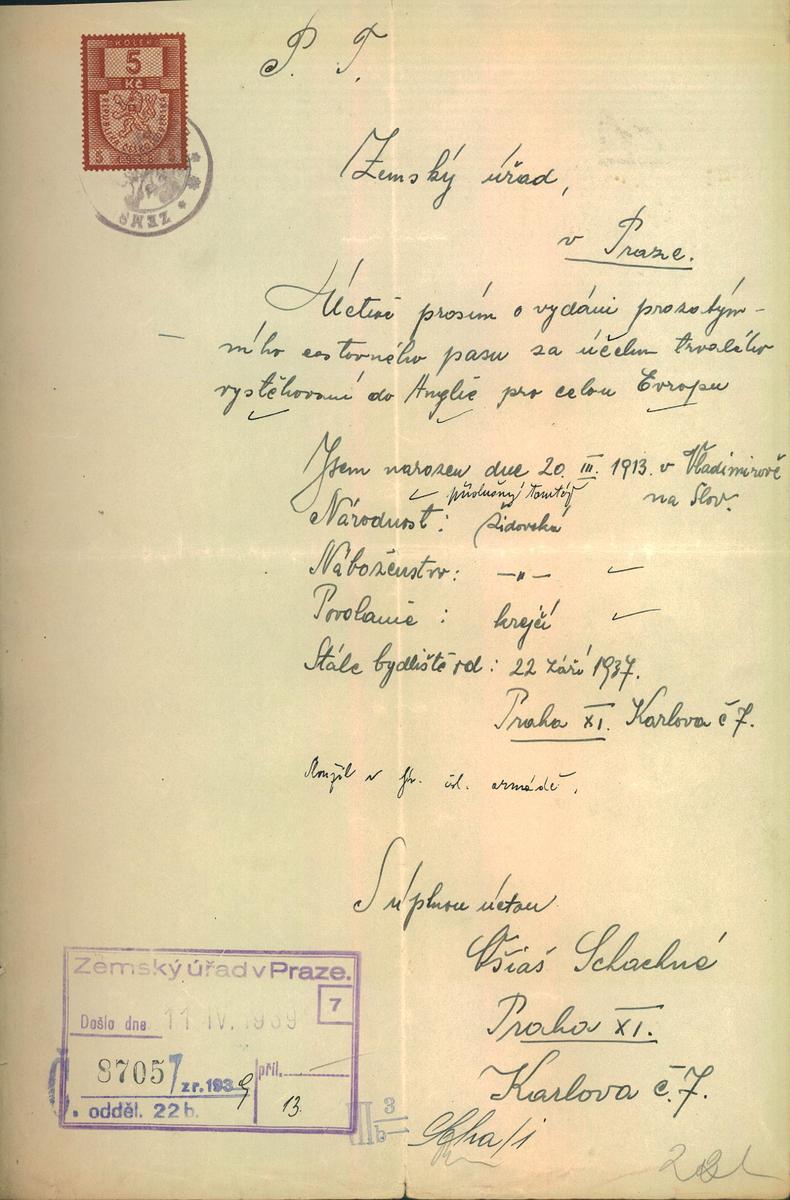 KOLEK
5
Kč
1938
ZEMS
P. T.
Zemský úřad,
v Praze.
Uctivě prosím o vydání prozatým-
ního cestovného pasu za účelem trvalého
vystěhovaní do Anglie pro celou Evropu
Jsem narozen dne 20. III. 1913. v Vladimirově
na Slov.
příslušný tamtéž
Národnost: židovská
Náboženstvo: —„—
Povolanie: krejčí
Stálé bydliště od: 22 září 1937.
Praha XI. Karlova č 7.
Sloužil v čsl. armádě.
S úplnou úctou
Ošiáš Schachné
Praha XI.
Karlova č. 7.
Zemský úřad v Praze.
7
Došlo dne 11 IV. 1939
Č. 87057 z r. 1939
příl.
odděl. 22 b.
13.
III 3
b
Scha/i